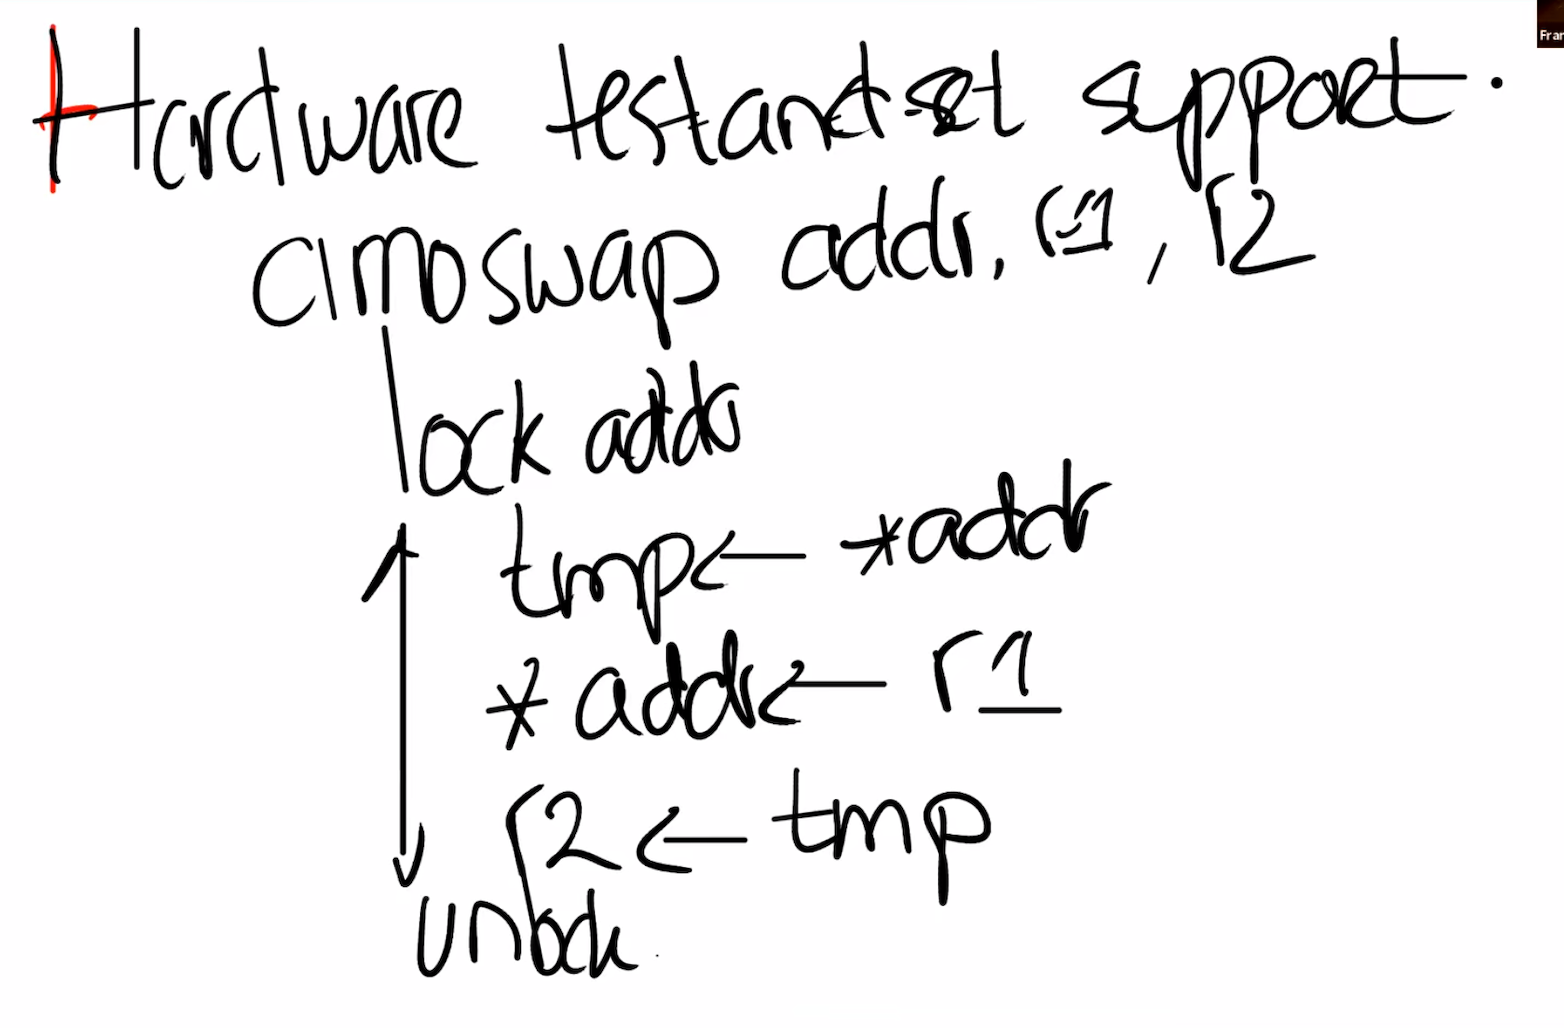 Hardware testandset support.
amoswap addr, r1, r2
lock addr
tmp ← *addr
* addr ← r1
r2 ← tmp
unlock.
Fran